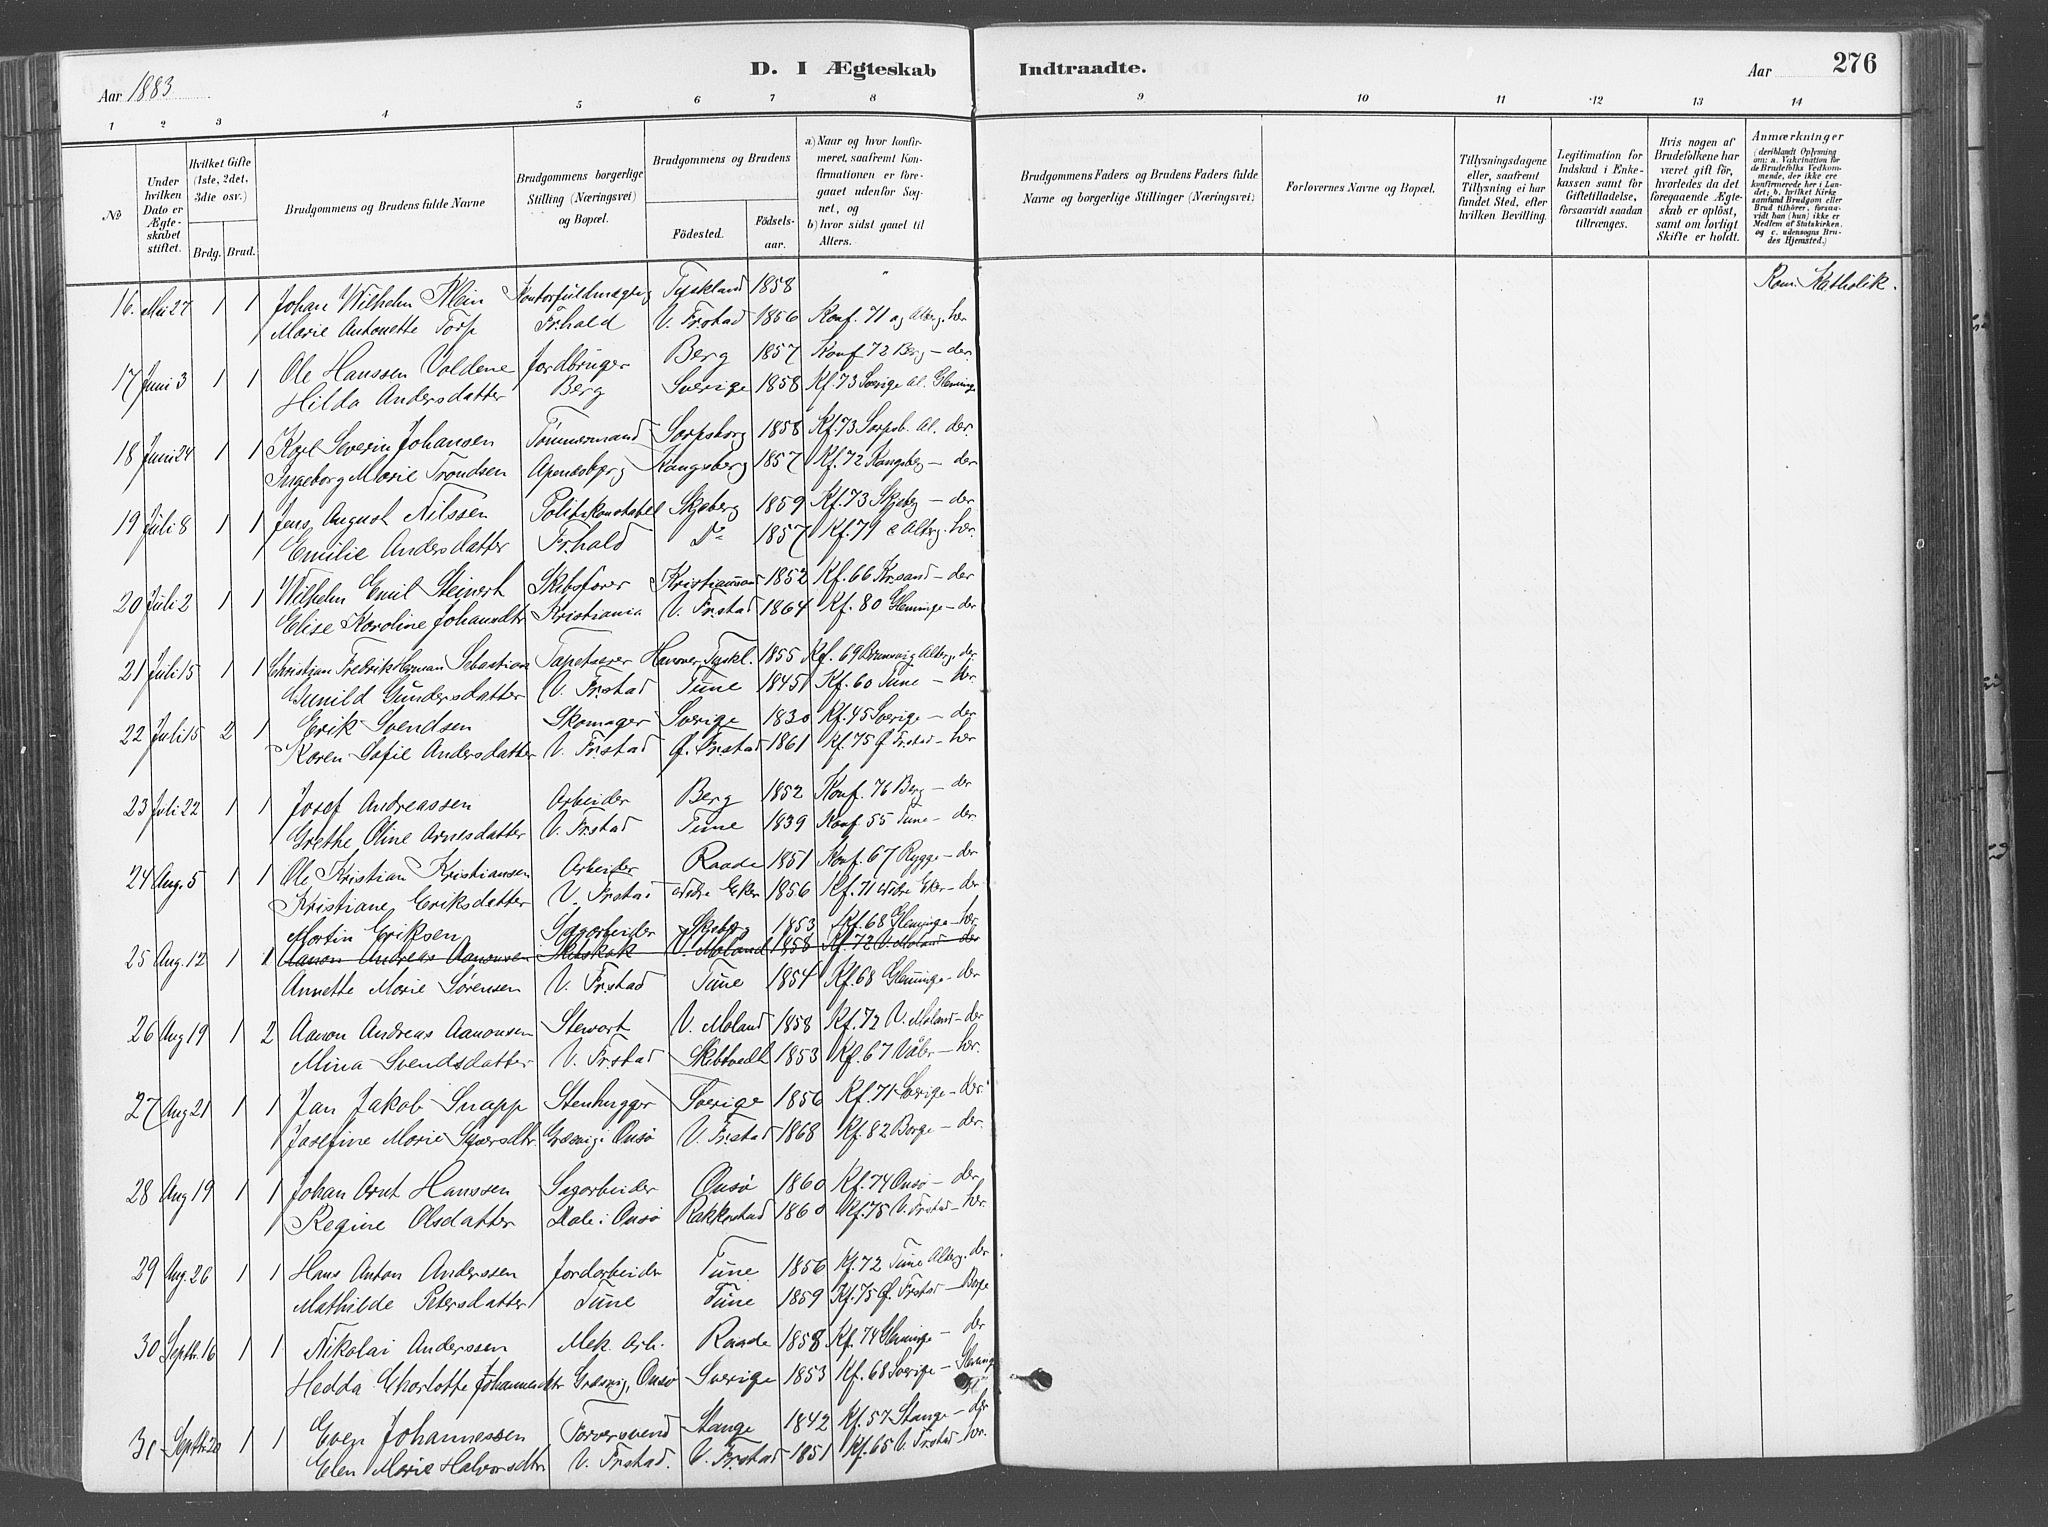 D. I Ægteskab Indtraadte.
276
Aar 1883
Aar
1 2 3 4 5 6 7 8 9 10 11 12 13 14
No
Under hvilken Dato er Ægteskabet stiftet.
Hvilket Gifte (1ste, 2det, 3die osv.)
Brdg. Brud.
Brudgommens og Brudens fulde Navne
Brudgommens borgerlige Stilling (Næringsvei) og Bopæl.
Brudgommens og Brudens
Fødested. Fødselsaar.
a) Naar og hvor konfirmeret, saafremt Konfirmationen er foregaaet udenfor Sognet, og b) hvor sidst gaaet til Alters.
Brudgommens Faders og Brudens Faders fulde Navne og borgerlige Stillinger (Næringsvei)
Forlovernes Navne og Bopæl.
Tillysningsdagene eller, saafremt Tillysning ei har fundet Sted, efter hvilken Bevilling.
Legitimation for Indskud i Enkekassen samt for Giftetilladelse, forsaavidt saadan tiltrænges.
Hvis nogen af Brudefolkene har været gift før, hvorledes da det foregaaende Ægteskab er opløst, samt om lovligt Skifte er holdt.
Anmærkninger (deriblandt Oplysning om: a. Vakcination for de Brudefolks Vedkommende, der ikke ere konfirmerede her i Landet; b. hvilket Kirkesamfund Brudgom eller Brud tilhører, forsaavidt han (hun) ikke er Medlem af Statskirken, og c. udensogns Brudes Hjemsted.)
16. Mai 27 1 1 Johan Wilhelm Klein Kontorfuldmægtig Tyskland 1858 Rom. Katholik.
Marie Antonette Torp Fr.hald V. Fr.stad 1856 Konf. 71 og Alterg. her
17 Juni 3 1 1 Ole Hanssen Voldene Jordbruger Berg 1857 Konf 72 Berg – der.
Hilda Andersdatter Berg Sverige 1858 Kf. 73 Sverige Al. Glemminge
18 Juni 24 1 1 Karl Severin Johansen Tømmermand Sarpsborg 1858 Kf. 73 Sarpsb. Al. der.
Ingeborg Marie Trondsen Apenesbjerg Kongsberg 1857 Kf. 72 Kongsberg – der
19 Juli 8 1 1 Jens August Nilssen Politikonstabel Skjeberg 1859 Kf. 73 Skjeberg – der
Emilie Andersdatter Fr.hald Do 1857 Kf. 71 Alterg. her.
20 Juli 2 1 1 Wilhelm Emil Steinert Skibsfører Kristianssand 1852 Kf. 66 Kr.sand – der
Elise Karoline Johansdtr Kristiania V. Fr.stad 1864 Kf. 80 Glemminge – der
21 Juli 15 1 1 Christian Fredrik Herman Sebastian Tapetserer Hanover, Tyskl. 1855 Kf. 69 Alterg. der
Gunild Gundersdatter V. Fr.stad Tune 1845 Kf. 60 Tune – her.
22 Juli 15 2 1 Erik Svendsen Skomager Sverige 1830 Kf. 45 Sverige – der
Karen Sofie Andersdatter V. Fr.stad Ø. Fr.stad 1861 Kf. 75 Ø Fr.stad – her
23 Juli 22 1 1 Josef Andreassen Arbeider Berg 1852 Konf. 76 Berg – der
Grethe Oline Arnesdatter V. Fr.stad Tune 1839 Konf 55 Tune – der.
24 Aug. 5 1 1 Ole Kristian Kristiansen Arbeider Raade 1851 Konf. 67 Rygge – der
Kristiane Eriksdatter V. Fr.stad Nedre Eker 1856 Kf. 71 Nedre Eker – der.
Martin Eriksen Sagarbeider Skjeberg 1853 Kf. 68 Glemminge – her.
25 Aug. 12 1 1 Aanon Andreas Aanonsen Skibskok V. Moland 1858 Kf. 72 V. Moland – der
Annette Marie Sørensen V. Fr.stad Tune 1854 Kf. 68 Glemminge – der
26 Aug 19 1 2 Aanon Andreas Aanonsen Stewart V. Moland 1858 Kf. 72 V. Moland – der
Mina Svendsdatter V. Fr.stad Skibtvedt 1853 Kf. 67 Våler – her.
27 Aug 21 1 1 Jan Jakob Snapp Stenhugger Sverige 1856 Kf. 71 Sverige – der.
Josefine Marie Græsvig i Onsø V. Fr.stad 1868 Kf. 82 Borge – der.
28 Aug 19 1 1 Johan Arnt Hanssen Sagarbeider Onsø 1860 Kf. 74 Onsø – der.
Regine Olsdatter Dale i Onsø Rakkestad 1860 Kf. 75 V. Fr.stad – her.
29 Aug. 26 1 1 Hans Anton Anderssen Jordarbeider Tune 1856 Kf. 72 Tune Alterg. der.
Mathilde Petersdatter Tune Tune 1859 Kf. 75 Ø. Fr.stad – Borge
30 Septbr. 16 1 1 Nikolai Anderssen Mek. Arb. Raade 1858 Kf. 74 Glemminge – der
Hedda Charlotte Johannesdtr Græsvig, Onsø Sverige 1853 Kf. 68 Sverige – Glemminge
31 Septbr. 20 1 1 Even Johannessen Farversvend Stange 1842 Kf. 57 Stange – der
Elen Marie Halvorsdtr V. Fr.stad. V. Fr.stad 1851 Kf. 65 V. Fr.stad – her.